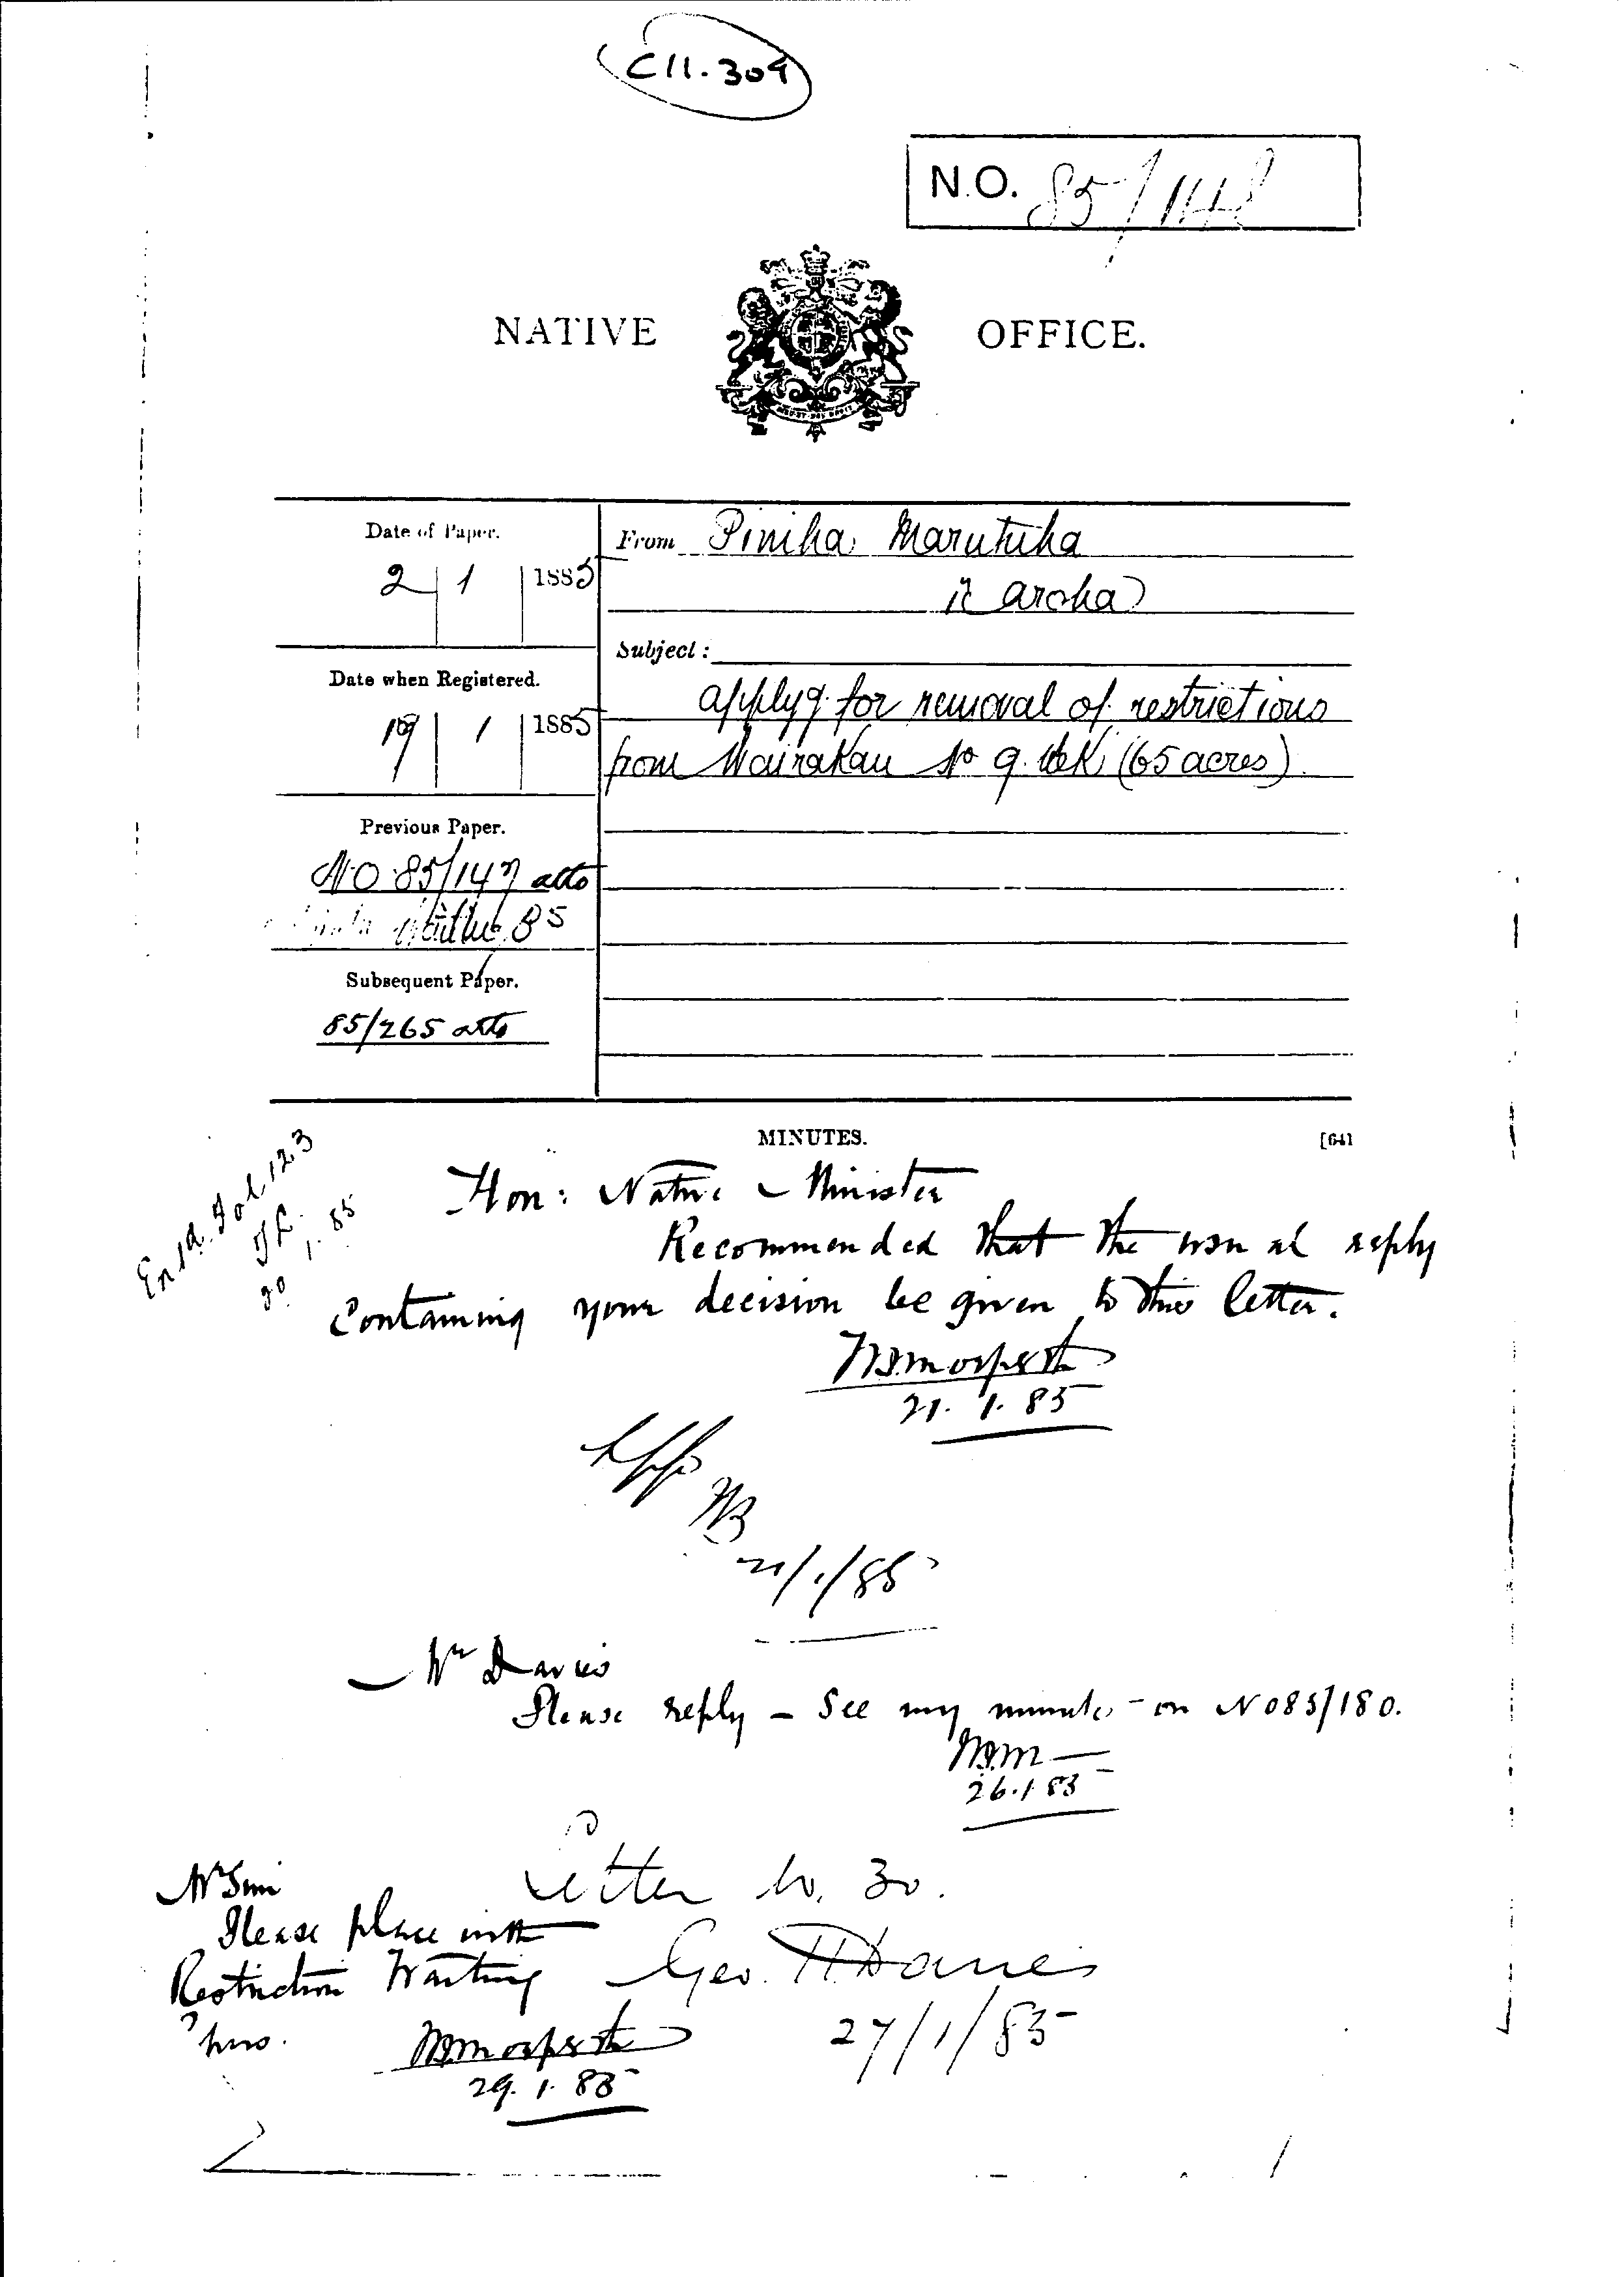 C11.309
N.O. 85/148
NATIVE OFFICE.
Date of Paper.
2 1 1885
From Piniha Marutuha
Te Aroha
Subject:
Date when Registered.
19 1 1885
applyg. for removal of restrictions
from Wairakau No 9. Blk (65 acres)
Previous Paper.
NO 85/147 atto
85
Subsequent Paper.
85/265 atto
MINUTES.
[641
Entd. Fol. 123
30.1.85
Hon: Native Minister
Recommended that the usual reply
containing your decision be given to this letter.
21.1.85
21/1/85
Mr Davies
Please reply - See my minute on NO 85/180.
26.1.85
Letter No. 30.
Geo. H. Davies
27/1/85
Mr Sim
Please place with
Restriction Waiting
29.1.85